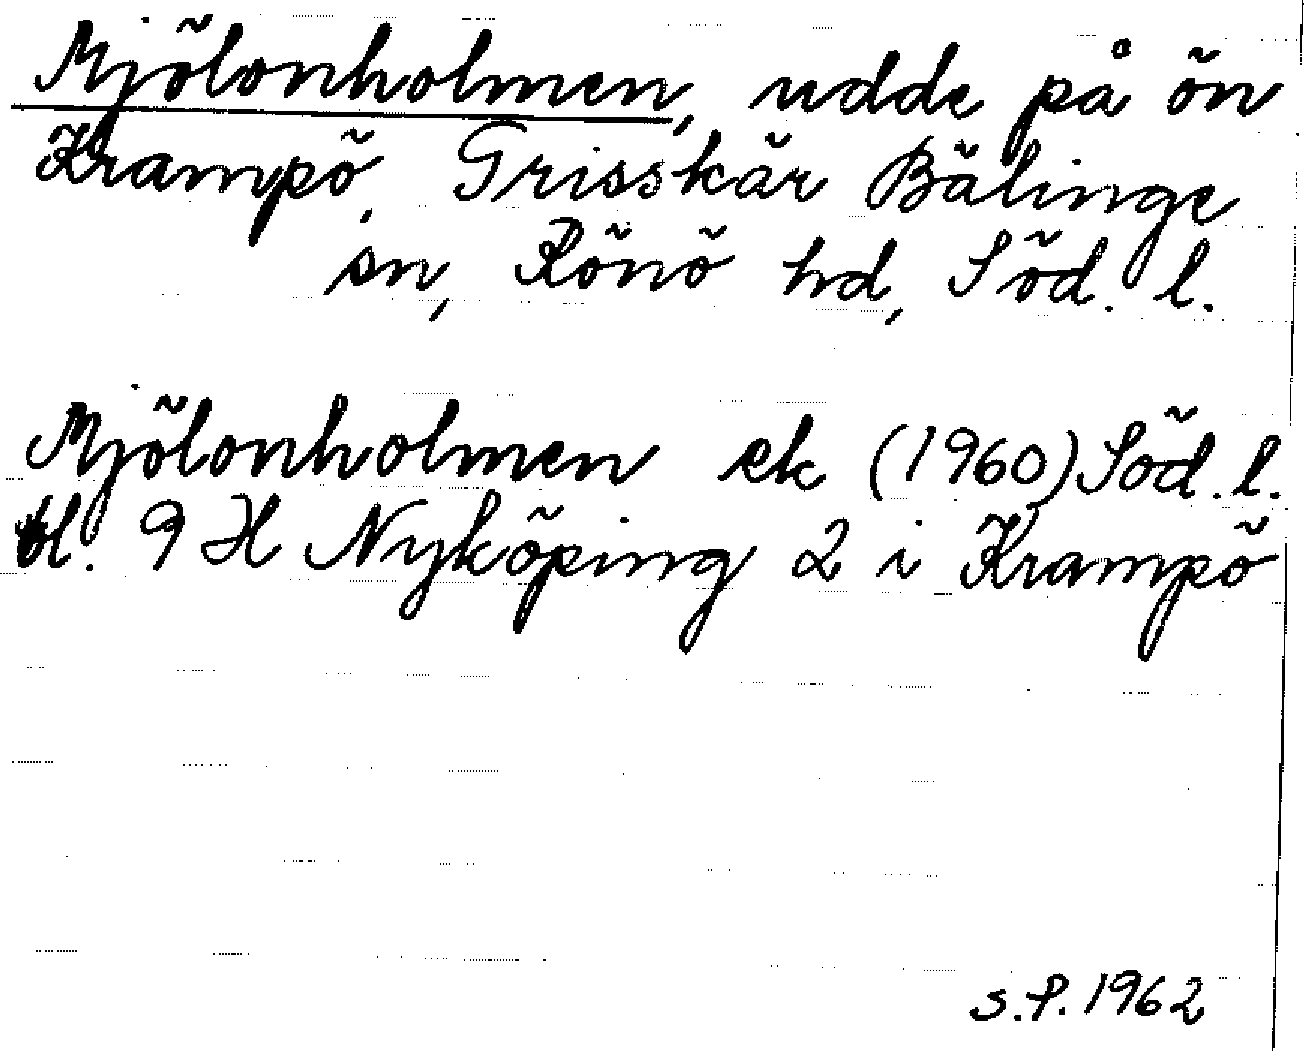 Mjölonholmen, udde på ön
Krampö, Grisskär Bälinge
sn, Rönö hd, Söd. l.
Mjölonholmen ek (1960) Söd. l.
bl. 9 H Nyköping 2 i Krampö
S.P. 1962